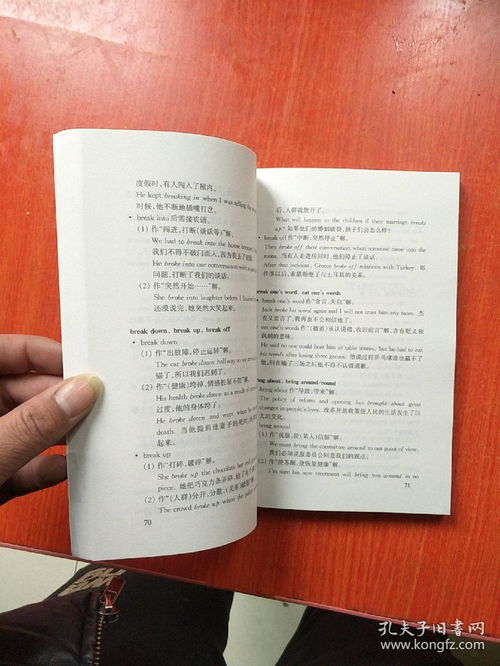 度假时,有人闯入了屋内。
He kept breaking in when I was telling the
时候,他不断地插嘴打岔。
• break into后需接宾语。
(1) 作“闯进,打断(谈话等)”解。
We had to break into the house because
我们不得不破门而入,因为我丢了
He broke into our conversation with
问题,打断了我们的谈话。
(2) 作“突然开始……”解。
She broke into laughter before I
还没说完,她突然大笑起来。
break down, break up, break off
• break down
(1) 作“出故障,停止运转”解。
The car broke down halfway so we
锚了,所以我们迟到了。
(2) 作“(健康)垮掉,情感抑制不住”解。
His health broke down as a result of
过度,他的身体垮了。
He broke down and wept when he
death. 当他提到他妻子的死时,
起来。
• break up
(1) 作“打碎,破碎”解。
She broke up the chocolate bar and
piece. 她把巧克力条弄碎,
(2) 作“(人群)分开,分散,(关系)破裂”解
The crowd broke up when the
70
后,人群就散开了。
What will happen to the children if their marriage breaks
up? 如果他们的婚姻破裂,孩子们会怎么样?
break off 作“中断,突然停止”解。
They broke off their conversation when someone came into the
room. 当有人走进房间时,他们停止了谈话。
After that incident, Greece broke off relations with Turkey. 那
件事以后,希腊断绝了与土耳其的关系。
break one's word, eat one's words
break one's word 作“食言,失信”解。
Jack broke his word again and I will not trust him any more. 杰
克又食言了,我再也不会相信他了。
eat one's words 作“(被迫)承认说错,收回前言”解,含有贬义和
讽刺的意味。
He said no one could beat him at table tennis, but he had to eat
his words after losing three games. 他说过打乒乓球谁也赢不了
他,但在输了三场之后他不得不认错道歉。
bring about, bring around/round
bring about 作“导致,带来”解。
The policy of reform and opening has brought about great
changes in people's lives. 改革开放政策使人民的生活发生了巨
大的变化。
bring around
(1) 作“说服,使(某人)信服”解。
We must bring the committee around to our point of view.
我们必须说服委员会同意我们的观点。
(2) 作“使苏醒,使恢复健康”解。
I'm sure his new treatment will bring you around in no
71
孔夫子旧书网
www.kongfz.com